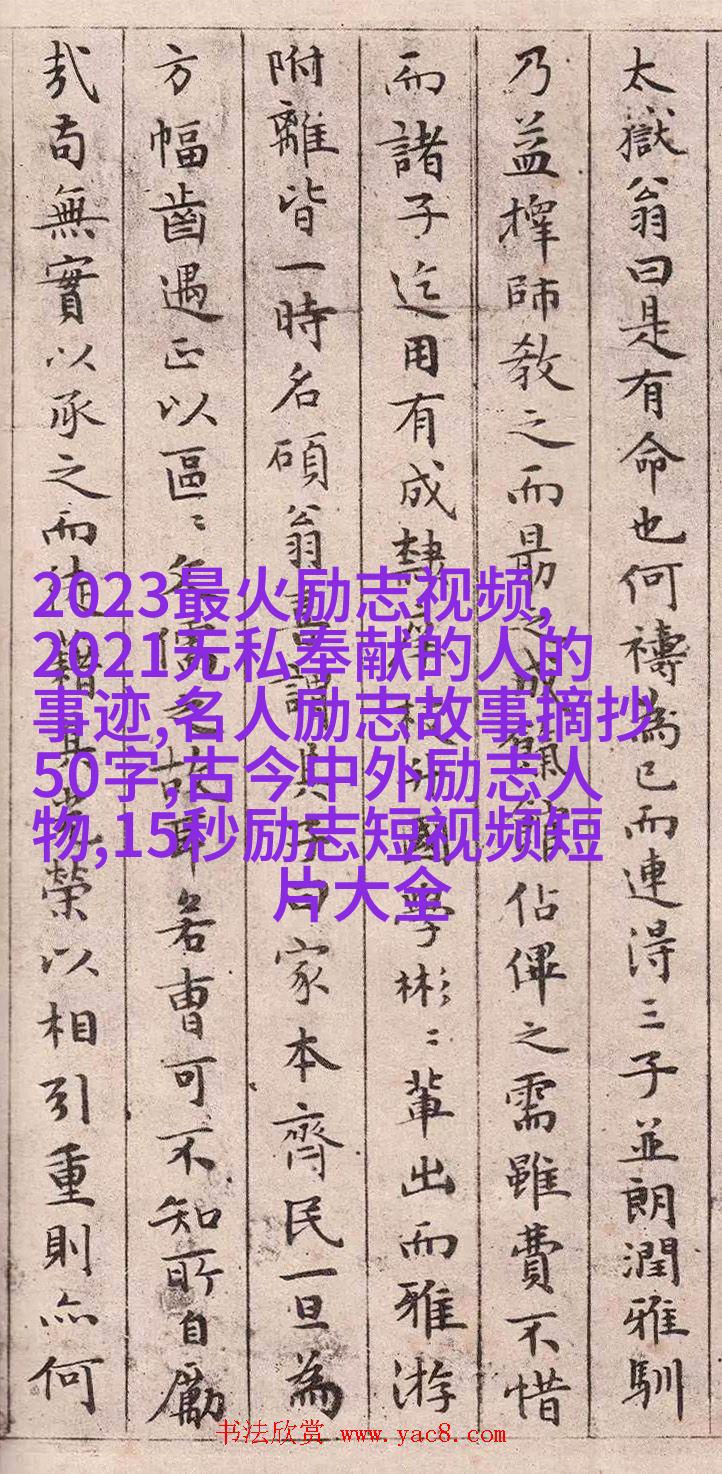 太嶽翁曰是有命也何禱為已而連得三子並朗潤雅馴
乃益擇師教之而最之成佔俾之需雖費不惜
而諸子迄用有成國學彬〻輩出而雅游
附離皆一時名碩翁書謂其子曰家本齊民一旦為
方幅齒遇正以區〻之故耳若曹可不知所自勵
哉苟無實以承之而徒藉其光榮以相引重則亦何
2023最火励志视频,
2021无私奉献的人的
事迹,名人励志故事摘抄
50字,古今中外励志人
物,15秒励志短视频短
片大全
书法欣赏 www.yac8.com